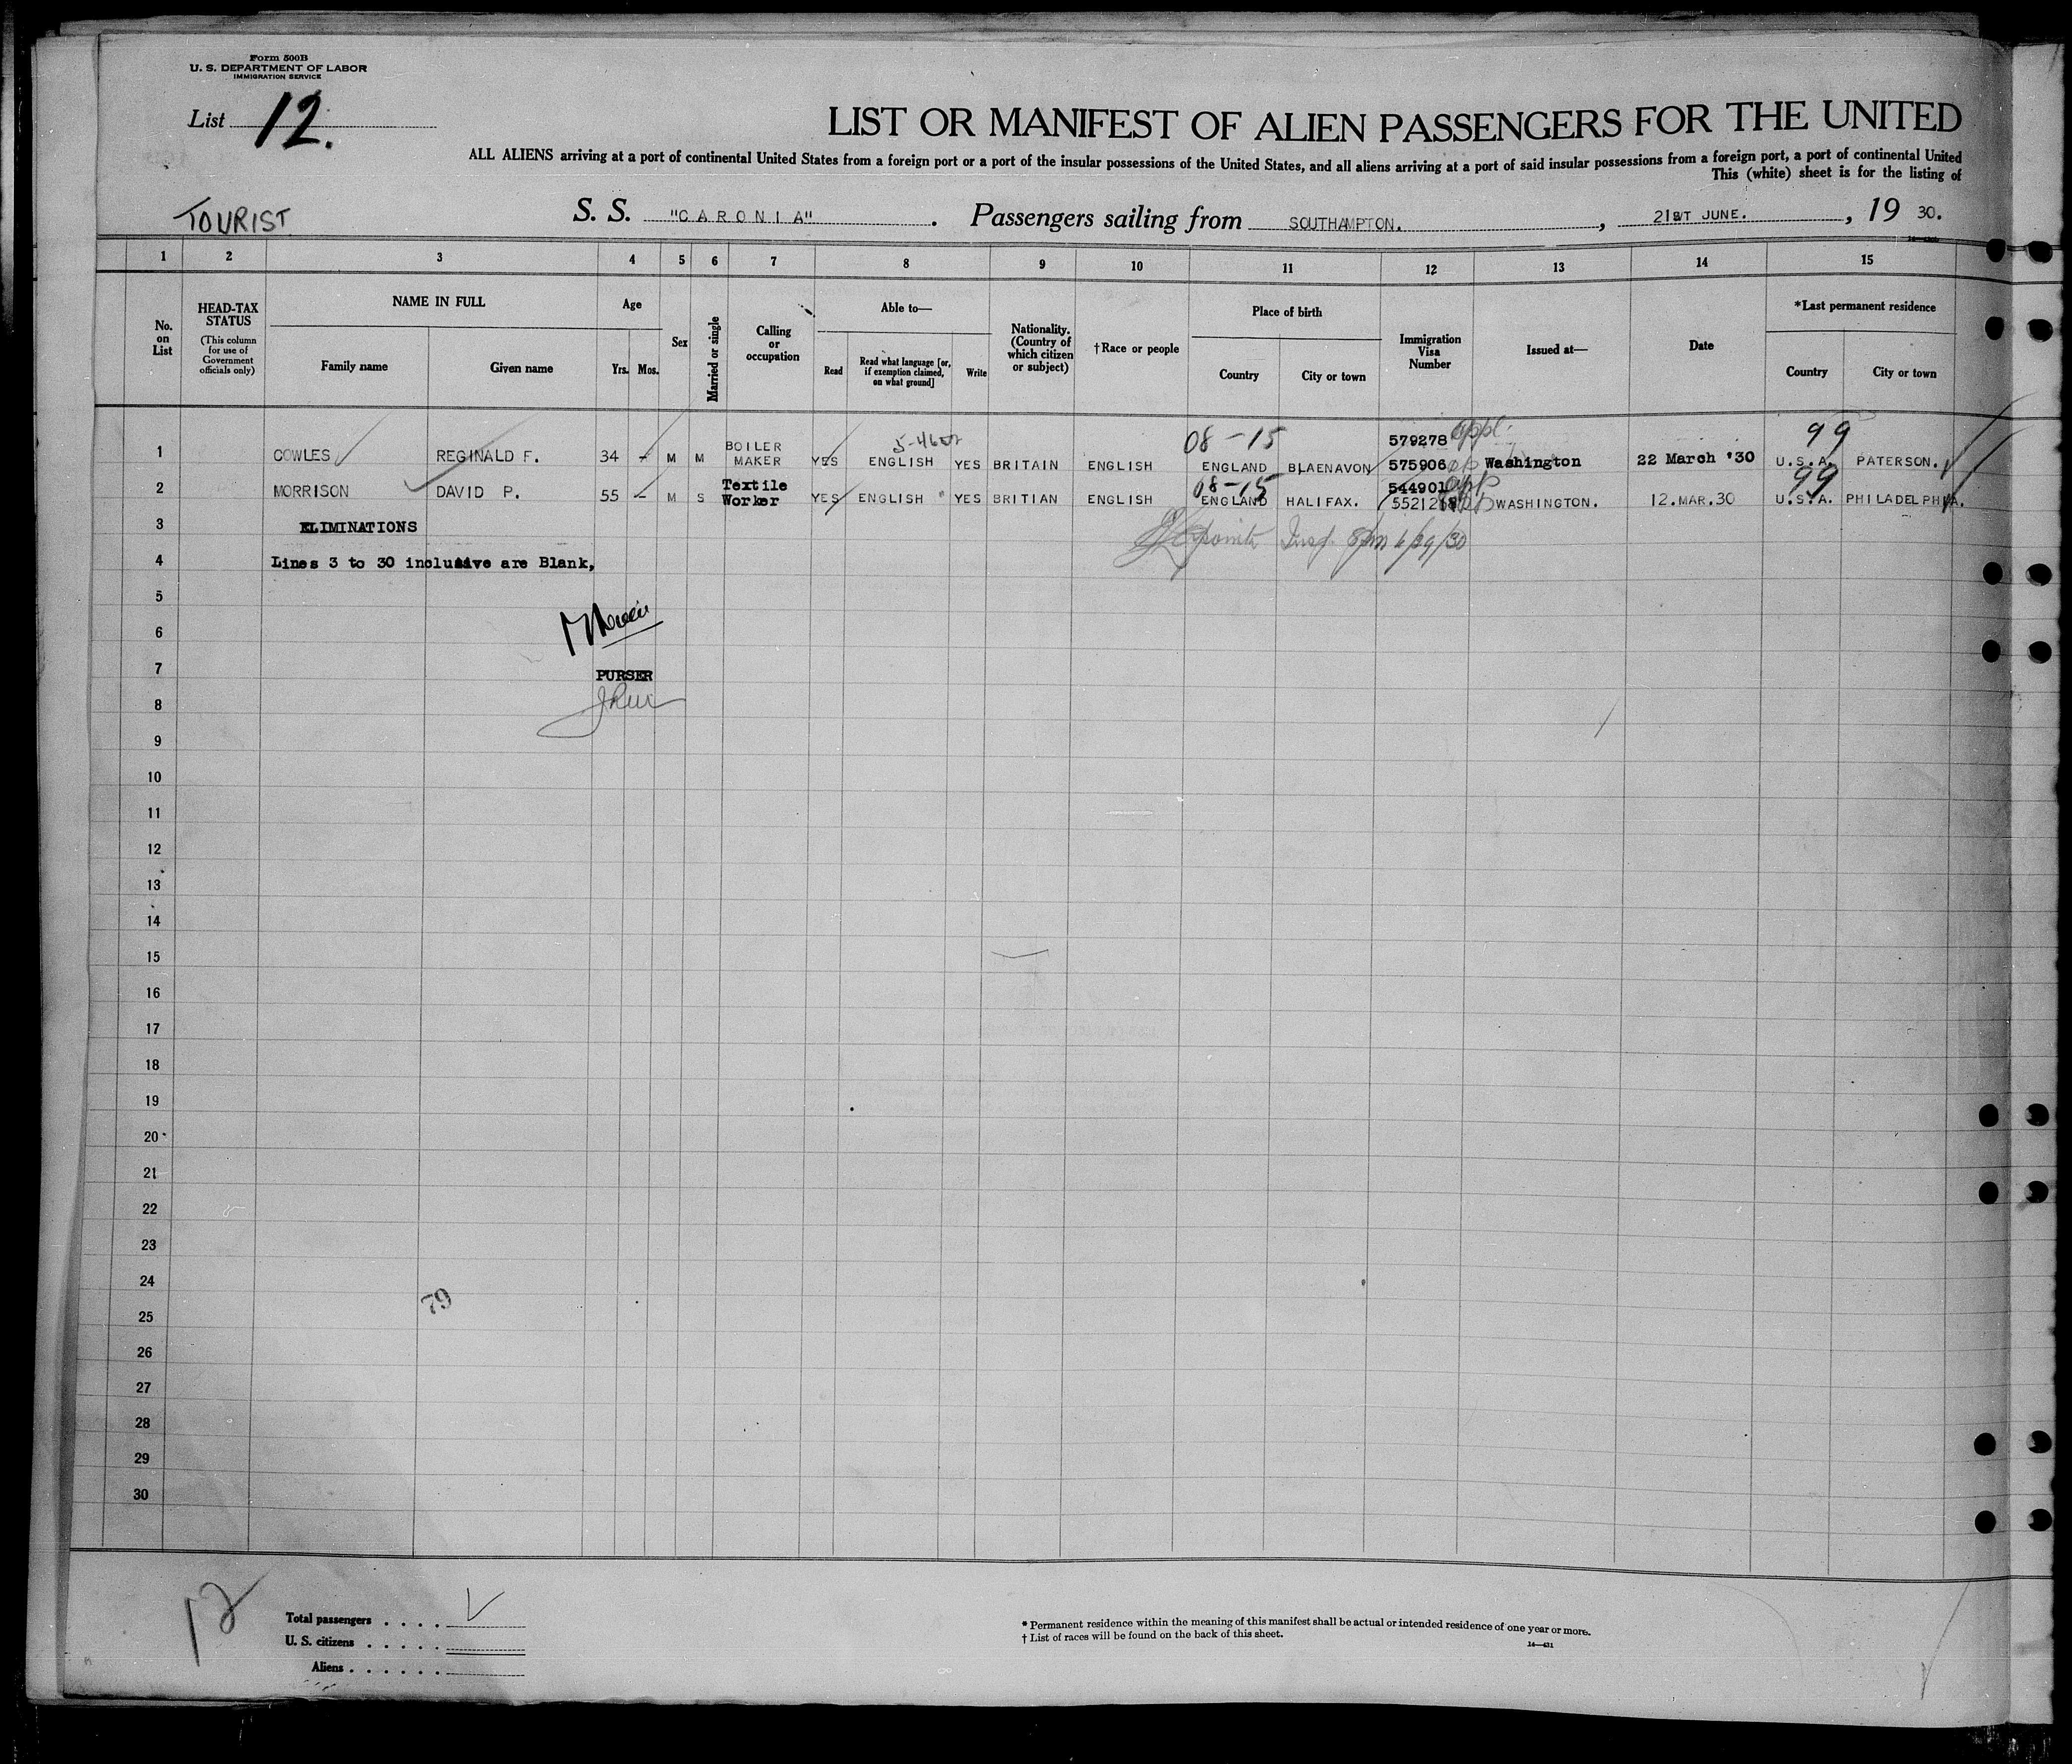 Form 500B
U. S. DEPARTMENT OF LABOR
IMMIGRATION SERVICE
List 12.
LIST OR MANIFEST OF ALIEN PASSENGERS FOR THE UNITED
ALL ALIENS arriving at a port of continental United States from a foreign port or a port of the insular possessions of the United States, and all aliens arriving at a port of said insular possessions from a foreign port, a port of continental United
This (white) sheet is for the listing of
TOURIST S. S. "CARONIA". Passengers sailing from SOUTHAMPTON., 21ST JUNE., 19 30.
1 2 3 4 5 6 7 8 9 10 11 12 13 14 15
No. on List
HEAD-TAX STATUS
(This column for use of Government officials only)
NAME IN FULL
Family name Given name
Age
Yrs. Mos.
Sex
Married or single
Calling or occupation
Able to—
Read Read what language [or, if exemption claimed, on what ground] Write
Nationality. (Country of which citizen or subject)
†Race or people
Place of birth
Country City or town
Immigration Visa Number
Issued at—
Date
*Last permanent residence
Country City or town
08-15 579278 appl. 99
1 COWLES REGINALD F. 34 - M M BOILER MAKER YES ENGLISH YES BRITAIN ENGLISH ENGLAND BLAENAVON 575906 Washington 22 March '30 U.S.A. PATERSON.
08-15 544901 app 99
2 MORRISON DAVID P. 55 - M S Textile Worker YES ENGLISH " YES BRITIAN ENGLISH ENGLAND HALIFAX. WASHINGTON. 12.MAR.30 U.S.A. PHILADELPHIA.
3 ELIMINATIONS
Insp. 6/29/30
4 Lines 3 to 30 inclusive are Blank,
5
6
7 PURSER
8
9
10
11
12
13
14
15
16
17
18
19
20
21
22
23
24
79
25
26
27
28
29
30
12
Total passengers . . . .
U. S. citizens . . . . .
Aliens . . . . . .
* Permanent residence within the meaning of this manifest shall be actual or intended residence of one year or more.
† List of races will be found on the back of this sheet.